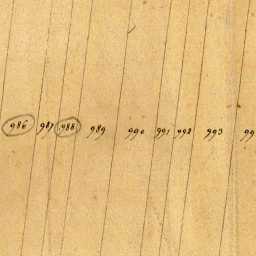 986 987 988 989 990 991 992 993 99